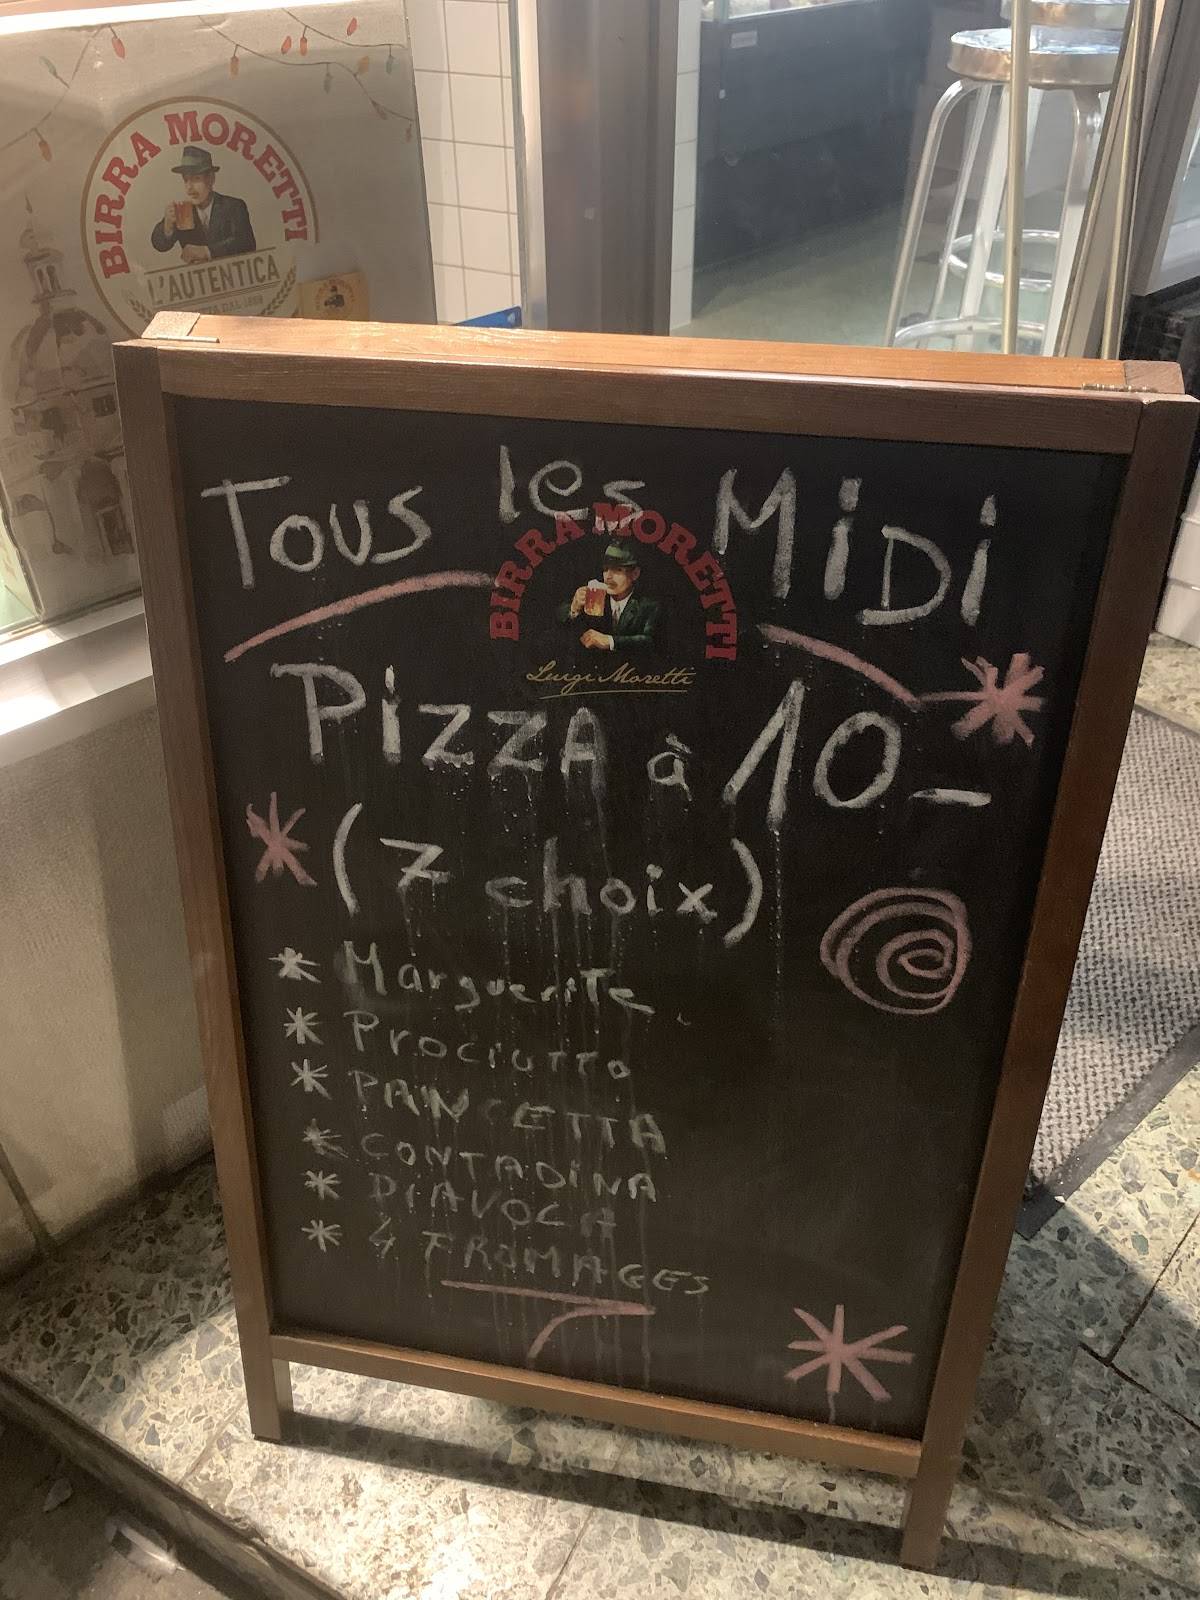 BIRRA MORETTI
L'AUTENTICA
Tous les Midi
BIRRA MORETTI
Luigi Moretti
Pizza à 10-
(7 choix)
* Marguerite
* Prociutto
* PANCETTA
* CONTADINA
* DIAVOLA
* 4 FROMAGES